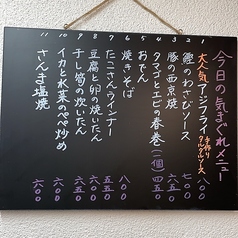 今日の気まぐれメニュー
1 大人気アジフライ 手作りタルタルソース 八〇〇
2 鰹のわさびソース 七〇〇
3 豚の西京焼 六八〇
4 タマゴとエビの春巻(一個) 四五〇
5 おでん
6 焼きそば 八〇〇
7 たこさんウインナー 五五〇
8 豆腐と卵の炒いたん 六五〇
9 干し筍の炊いたん 六五〇
10 イカと水菜のペペ炒め 六〇〇
11 さんま塩焼 六〇〇